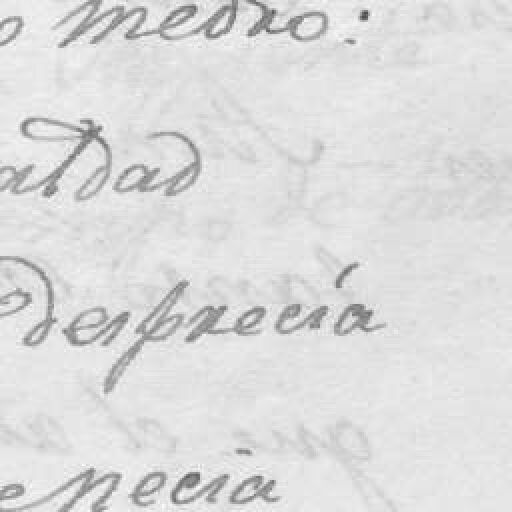 o medro:
aldad
desprecia
e necia